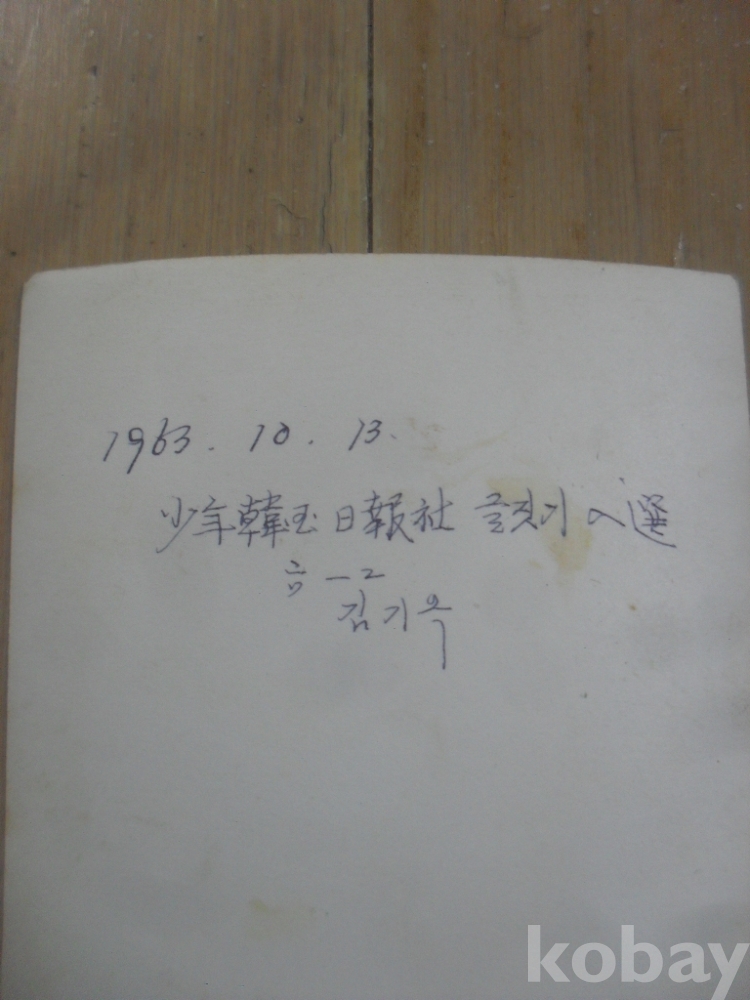 1963. 10. 13.
少年韓国日報社 글짓기 入選
음-2
김기옥
kobay